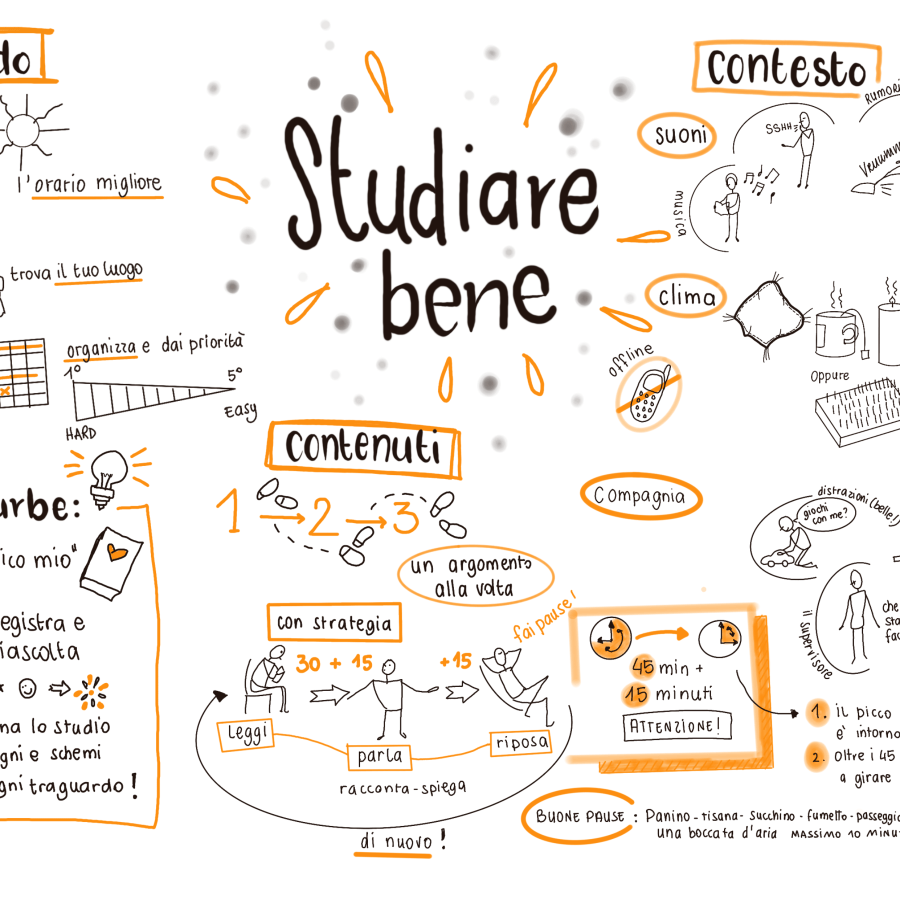 Studiare
bene
l'orario migliore
trova il tuo luogo
organizza e dai priorità
1°
5°
HARD
Easy
ico mio"
registra e
riascolta
lo studio
e schemi
traguardo!
contenuti
1 2 3
un argomento
alla volta
con strategia
30 + 15
+15
fai pause!
leggi
parla
riposa
racconta - spiega
di nuovo!
contesto
suoni
SSHH
musica
clima
Oppure
offline
Compagnia
distrazioni (belle!)
giochi
con me?
il supervisore
che
45 min +
15 minuti
ATTENZIONE!
1. il picco
è intorno
2. Oltre i 45
a girare
BUONE PAUSE: Panino - tisana - succhino - fumetto -
una boccata d'aria MASSIMO 10